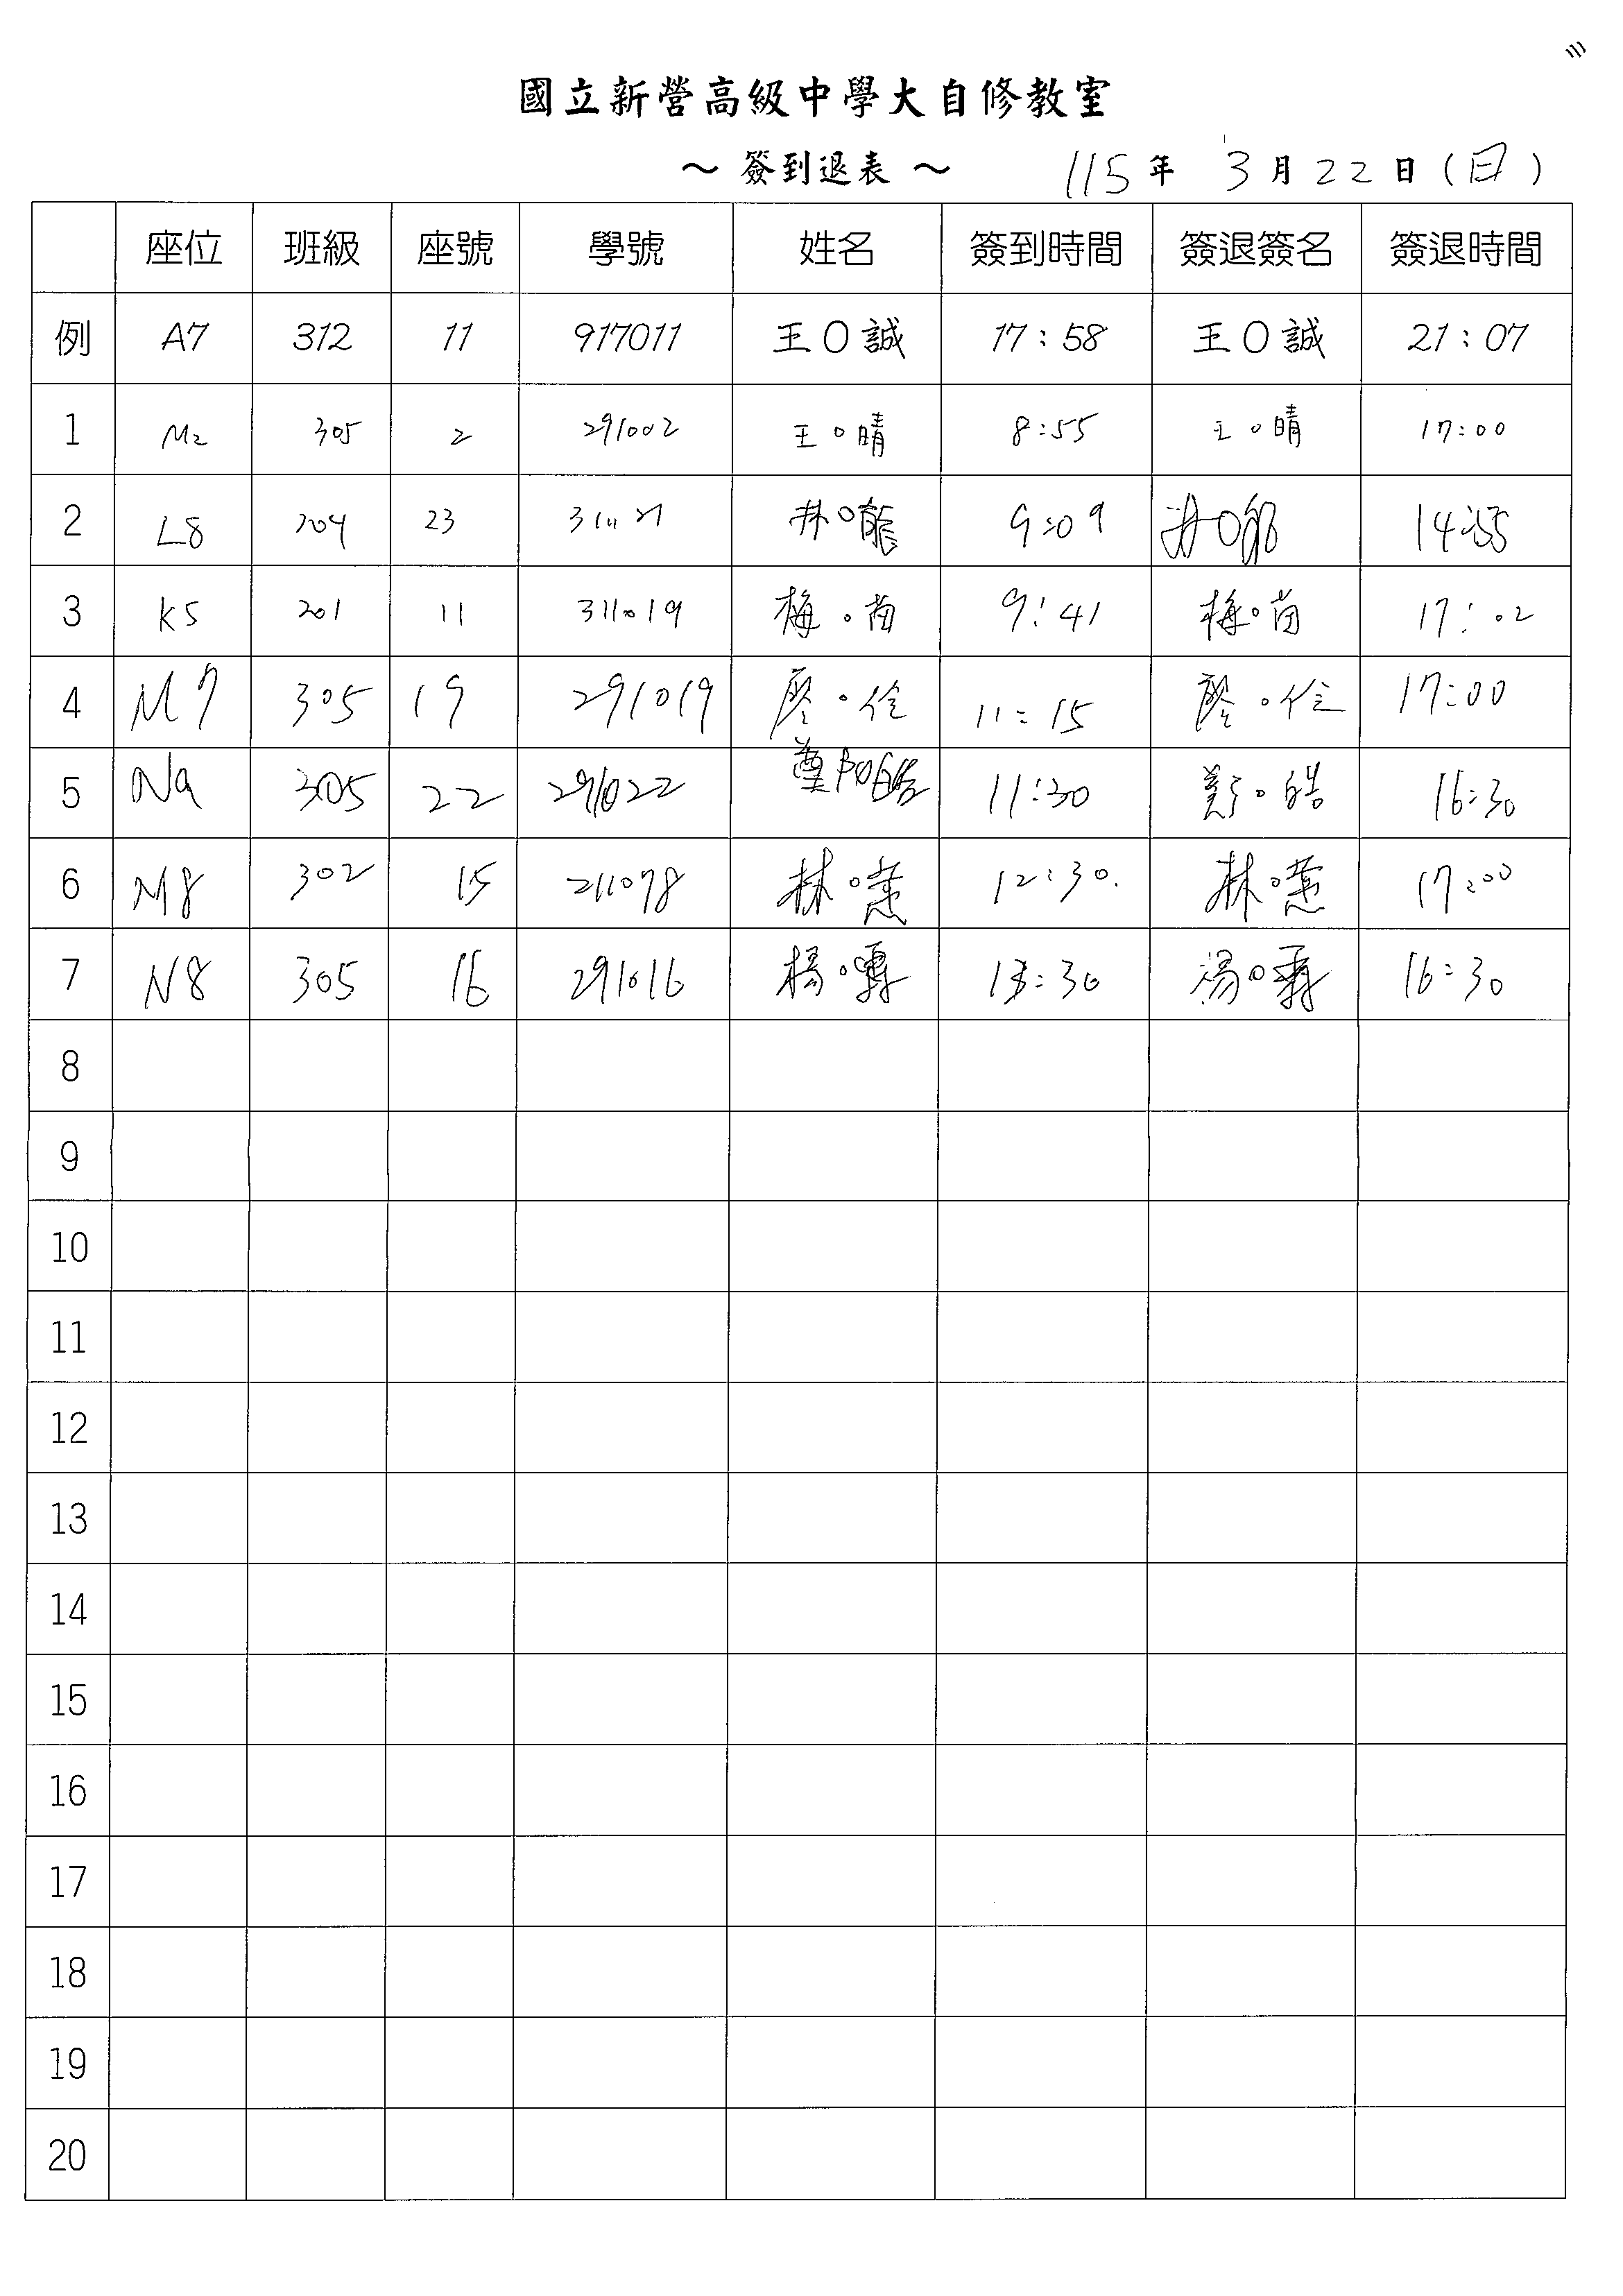 國立新營高級中學大自修教室
～ 簽到退表 ～ 115 年 3 月 22 日 (日)
座位 班級 座號 學號 姓名 簽到時間 簽退簽名 簽退時間
例 A7 312 11 917011 王O誠 17:58 王O誠 21:07
1 M2 305 2 291002 王O晴 8:55 王O晴 17:00
2 L8 204 23 林O龍 9:09 14:55
3 K5 201 11 311019 梅O茵 9:41 梅O茵 17:02
4 M7 305 19 291019 廖O佺 11:15 廖O佺 17:00
5 N9 305 22 291022 鄭O皓 11:30 鄭O皓 16:30
6 M8 302 15 211078 林O蕙 12:30 林O蕙 17:00
7 N8 305 16 291016 楊O霈 13:30 楊O霈 16:30
8
9
10
11
12
13
14
15
16
17
18
19
20